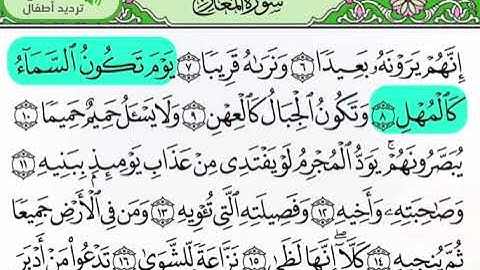 ترديد أطفال
سورة المعارج
إِنَّهُمْ يَرَوْنَهُۥ بَعِيدًا ۝٦ وَنَرَىٰهُ قَرِيبًا ۝٧ يَوْمَ تَكُونُ ٱلسَّمَآءُ
كَٱلْمُهْلِ ۝٨ وَتَكُونُ ٱلْجِبَالُ كَٱلْعِهْنِ ۝٩ وَلَا يَسْـَٔلُ حَمِيمٌ حَمِيمًا ۝١٠
يُبَصَّرُونَهُمْ ۚ يَوَدُّ ٱلْمُجْرِمُ لَوْ يَفْتَدِى مِنْ عَذَابِ يَوْمِئِذٍۭ بِبَنِيهِ ۝١١
وَصَٰحِبَتِهِۦ وَأَخِيهِ ۝١٢ وَفَصِيلَتِهِ ٱلَّتِى تُـْٔوِيهِ ۝١٣ وَمَن فِى ٱلْأَرْضِ جَمِيعًا
ثُمَّ يُنجِيهِ ۝١٤ كَلَّآ ۖ إِنَّهَا لَظَىٰ ۝١٥ نَزَّاعَةً لِّلشَّوَىٰ ۝١٦ تَدْعُوا۟ مَنْ أَدْبَرَ